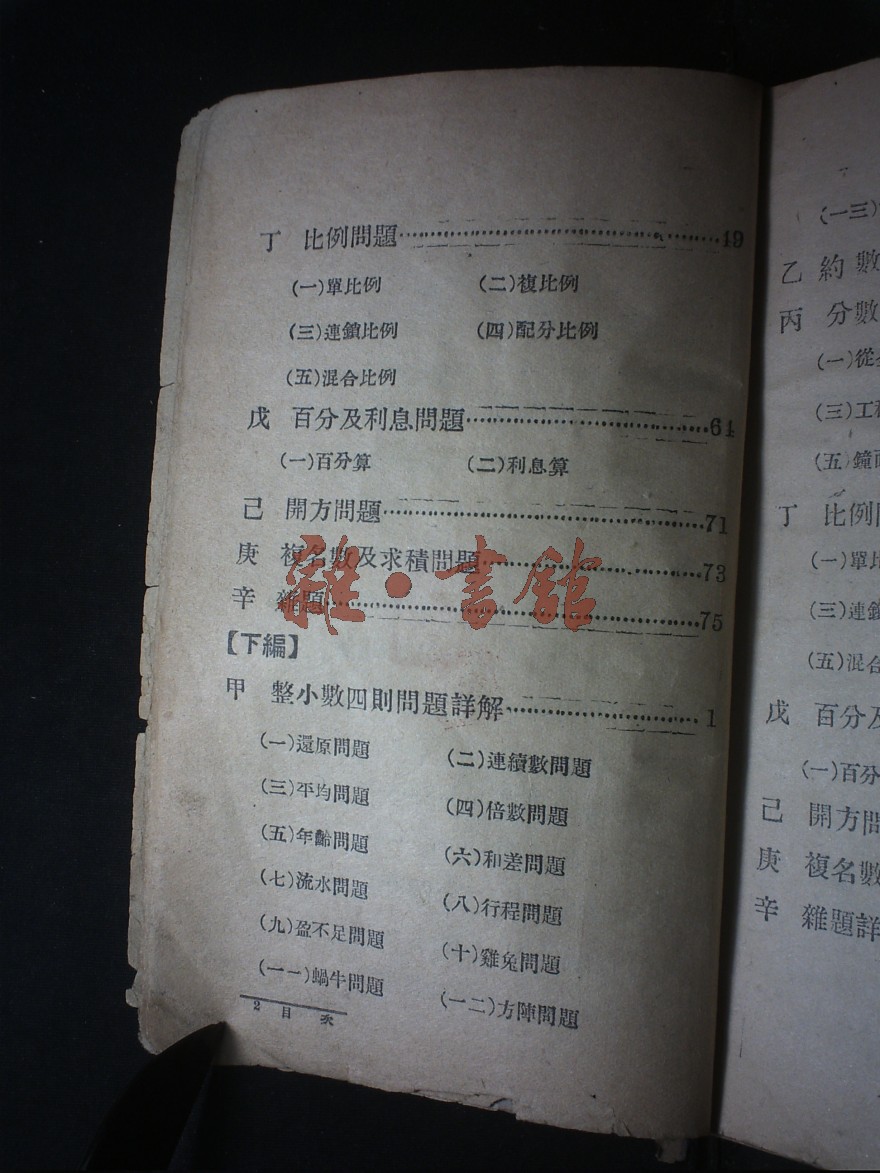 丁 比例問題……49
(一)單比例 (二)複比例
(三)連鎖比例 (四)配分比例
(五)混合比例
戊 百分及利息問題……64
(一)百分算 (二)利息算
己 開方問題……71
庚 複名數及求積問題……73
辛 雜題……75
【下編】
甲 整小數四則問題詳解……1
(一)還原問題 (二)連續數問題
(三)平均問題 (四)倍數問題
(五)年齡問題 (六)和差問題
(七)流水問題 (八)行程問題
(九)盈不足問題 (十)雞兔問題
(一一)蝸牛問題 (一二)方陣問題
2 目 次
雜·書館
(一三)
乙 約數
丙 分數
(一)從
(三)工
(五)鐘
丁 比例
(一)單
(三)連
(五)混
戊 百分
(一)百分
己 開方
庚 複名數
辛 雜題詳